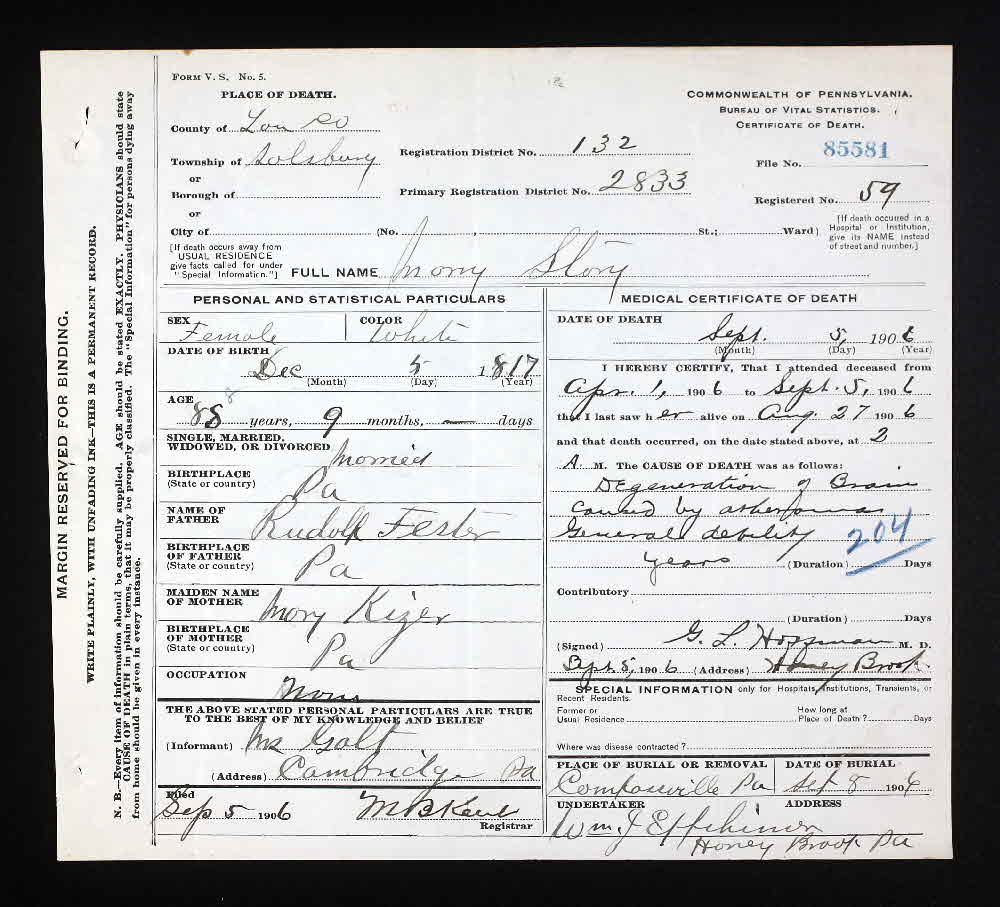 FORM V. S. No. 5.
PLACE OF DEATH.
County of Lan Co
Township of Salsbury
or
Borough of
or
City of (No. , St.; Ward)
[If death occurs away from
USUAL RESIDENCE
give facts called for under
"Special Information."]
Registration District No. 132
Primary Registration District No. 2833
COMMONWEALTH OF PENNSYLVANIA.
BUREAU OF VITAL STATISTICS.
CERTIFICATE OF DEATH.
File No. 85581
Registered No. 59
[If death occured in a
Hospital or Institution,
give its NAME instead
of street and number.]
FULL NAME Mary Story
PERSONAL AND STATISTICAL PARTICULARS
SEX Female
COLOR White
DATE OF BIRTH
Dec 5 1817
(Month) (Day) (Year)
AGE
88 years, 9 months, — days
SINGLE, MARRIED,
WIDOWED, OR DIVORCED Married
BIRTHPLACE
(State or country) Pa
NAME OF
FATHER Rudolf Fester
BIRTHPLACE
OF FATHER
(State or country) Pa
MAIDEN NAME
OF MOTHER Mary Kizer
BIRTHPLACE
OF MOTHER
(State or country) Pa
OCCUPATION
None
THE ABOVE STATED PERSONAL PARTICULARS ARE TRUE
TO THE BEST OF MY KNOWLEDGE AND BELIEF
(Informant) Mrs Galt
(Address) Cambridge Pa
Filed
Sep 5 1906
Registrar
MEDICAL CERTIFICATE OF DEATH
DATE OF DEATH
Sept. 5, 1906
(Month) (Day) (Year)
I HEREBY CERTIFY, That I attended deceased from
Apr. 1, 1906 to Sept. 5, 1906
that I last saw her alive on Aug. 27 1906
and that death occurred, on the date stated above, at 2
A M. The CAUSE OF DEATH was as follows:
Degeneration of Brain
caused by atheroma
General debility 204
years (Duration) Days
Contributory
(Duration) Days
(Signed) G. L. Hoffman M. D.
Sept. 5, 1906 (Address) Honey Brook
SPECIAL INFORMATION only for Hospitals, Institutions, Transients, or
Recent Residents.
Former or
Usual Residence
How long at
Place of Death? Days
Where was disease contracted?
PLACE OF BURIAL OR REMOVAL
Compassville Pa
DATE OF BURIAL
Sept 8 1906
UNDERTAKER
Wm J
ADDRESS
Honey Brook Pa
MARGIN RESERVED FOR BINDING.
WRITE PLAINLY, WITH UNFADING INK—THIS IS A PERMANENT RECORD.
N. B.—Every item of information should be carefully supplied. AGE should be stated EXACTLY. PHYSICIANS should state
CAUSE OF DEATH in plain terms, that it may be properly classified. The "Special Information" for persons dying away
from home should be given in every instance.